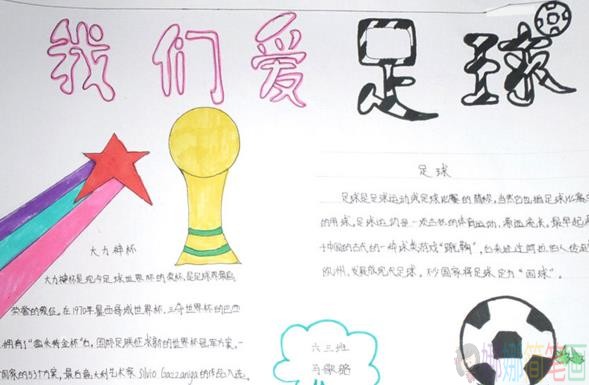 我们爱足球
足球
足球是足球运动或足球比赛的简称,当然它也指足球比赛
的用球。足球运动是一项古老的体育运动,源远流长。最早起
于中国的古代的一种球类游戏“蹴鞠”,后来经过阿拉伯人传
欧州,发展成现代足球。不少国家将足球定为“国球”。
大力神杯
大力神杯是现今足球世界杯的奖杯,是足球界最高
荣誉的象征。在1970年墨西哥世界杯,三夺世界杯的巴西
拥有了“雷米特金杯”后,国际足联征求新的世界杯冠军方案。
国家的53个方案,最后意大利艺术家Silvio Gazzaniga的作品入选。
六三班
娜娜简笔画